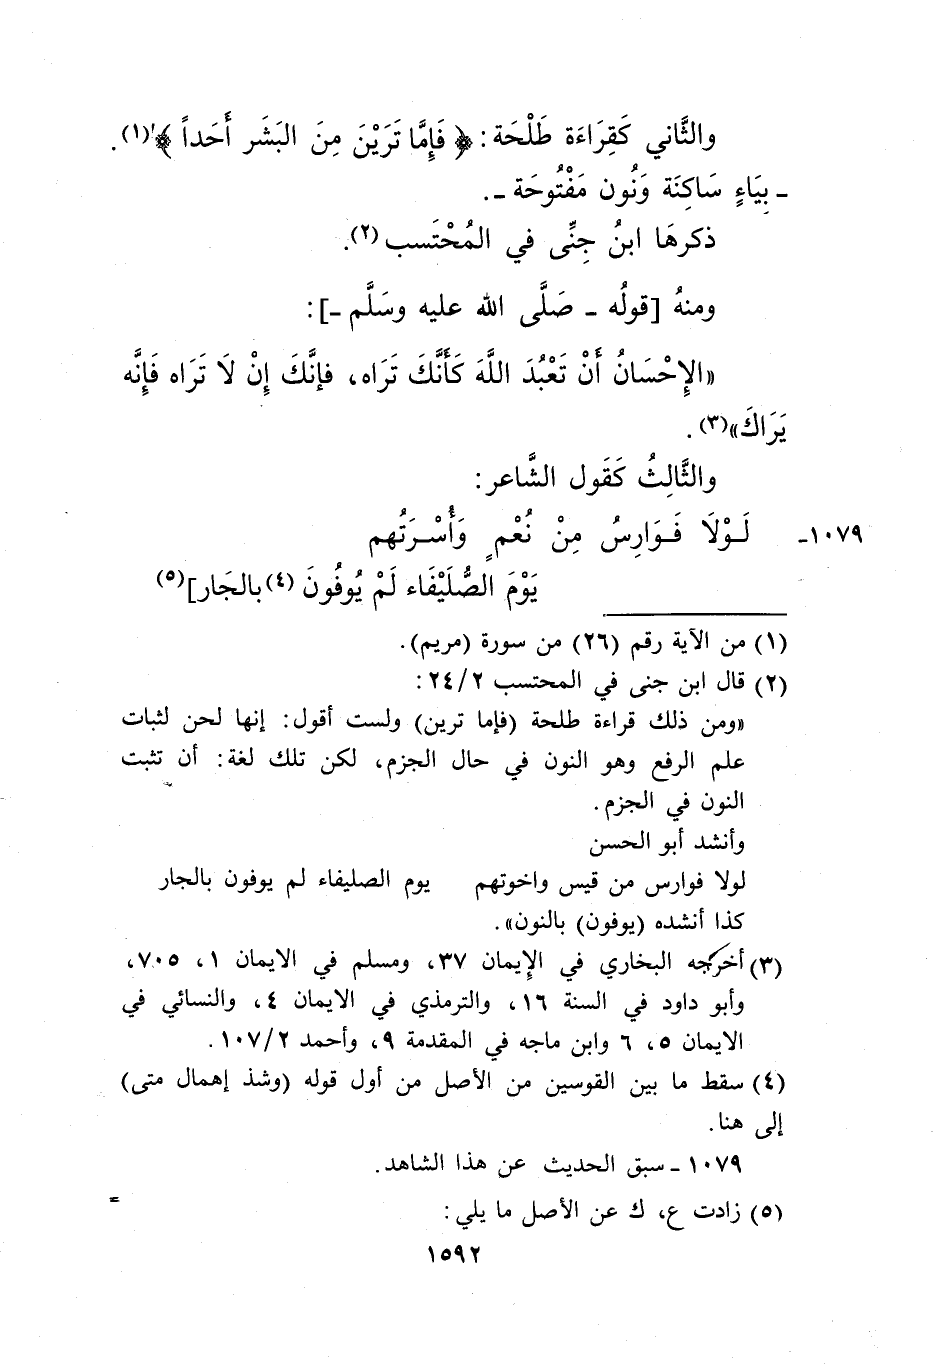 والثَّاني كَقِرَاءَة طَلْحَة: ﴿ فَإِمَّا تَرَيْنَ مِنَ البَشَر أَحَداً ﴾(١).
ـ بِيَاءٍ سَاكِنَة وَنُون مَفْتُوحَة ـ.
ذكرهَا ابنُ جِنِّى في المُحْتَسب(٢).
ومنهُ [قولُه ـ صَلَّى الله عليه وسَلَّم ـ]:
«الإِحْسَانُ أَنْ تَعْبُدَ اللَّهَ كَأَنَّكَ تَرَاه، فإنَّكَ إِنْ لَا تَرَاه فَإِنَّه
يَرَاكَ»(٣).
والثَّالِثُ كَقَول الشَّاعر:
١٠٧٩ـ لَـوْلَا فَـوَارِسُ مِنْ نُعْمٍ وَأُسْـرَتُهم
يَوْمَ الصُّلَيْفَاء لَمْ يُوفُونَ (٤) بالجَار](٥)
(١) من الآية رقم (٢٦) من سورة (مريم).
(٢) قال ابن جنى في المحتسب ٢٤/٢:
«ومن ذلك قراءة طلحة (فإما ترين) ولست أقول: إنها لحن لثبات
علم الرفع وهو النون في حال الجزم، لكن تلك لغة: أن تثبت
النون في الجزم.
وأنشد أبو الحسن
لولا فوارس من قيس واخوتهم يوم الصليفاء لم يوفون بالجار
كذا أنشده (يوفون) بالنون».
(٣) أخرجه البخاري في الإيمان ٣٧، ومسلم في الايمان ١، ٧٠٥،
وأبو داود في السنة ١٦، والترمذي في الايمان ٤، والنسائي في
الايمان ٥، ٦ وابن ماجه في المقدمة ٩، وأحمد ١٠٧/٢.
(٤) سقط ما بين القوسين من الأصل من أول قوله (وشذ إهمال متى)
إلى هنا.
١٠٧٩ ـ سبق الحديث عن هذا الشاهد.
(٥) زادت ع، ك عن الأصل ما يلي: =
١٥٩٢